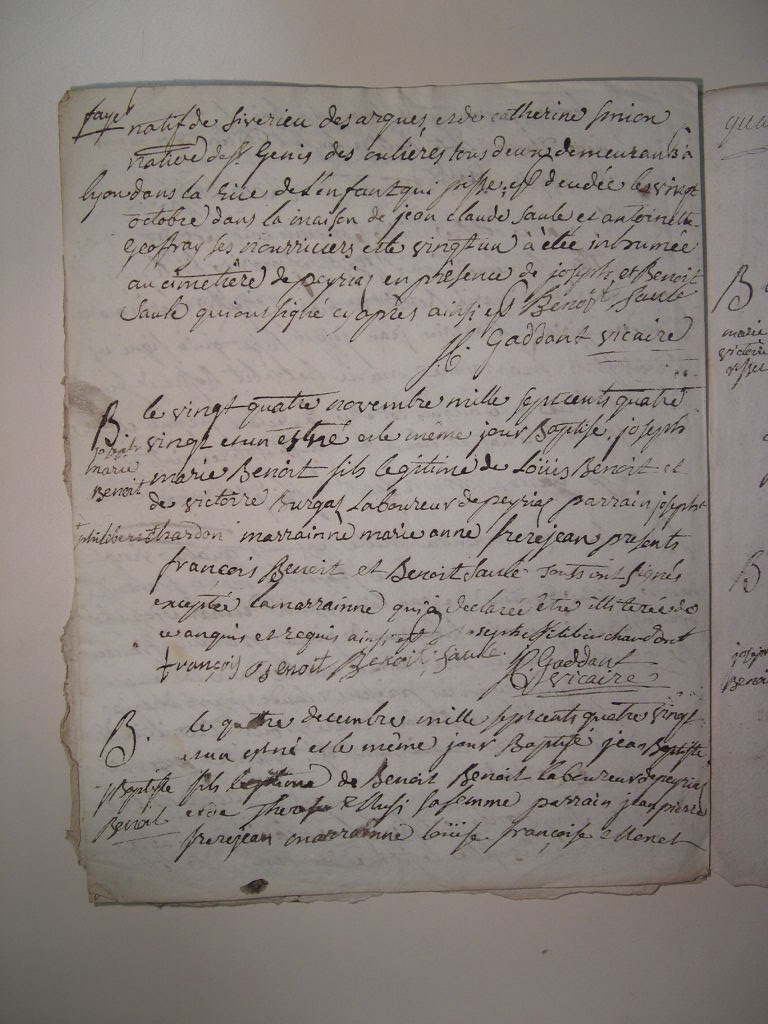 faye
natif de Siverieu des arques, et de catherine Simion
native de St Genis des oulières tous deux demeurants à
lyon dans la Rue de L'enfant qui pisse, est decedée le vingt
octobre dans la maison de jean claude Saule et antoinette
Geoffray ses nourriciers et le vingt un à été inhumée
au cimetière de peyrias en présence de joseph et Benoit
Saule qui ont signé cy après ainsi est Benoit, Saule
Gaddant vicaire
B le vingt quatre novembre mille septcents quatre
vingt et un est né et le même jour Baptisé, joseph
joseph
marie Benoit fils legitime de Loüis Benoit et
marie
Benoit
de victoire Burgas Laboureur de peyrias parrain joseph
philibert chardon marrainne marie anne frerejean presents
françois Benoit et Benoit Saule
exceptée la marrainne qui a declarée être illiterée de
ce anquis et requis ainsi est joseph chardont
françois Benoit Benoit, Saule. Gaddant
vicaire
B. le quatre decembre mille septcents quatre vingt
et un est né et le même jour Baptisé jean Baptiste
jBaptiste fils legitime de Benoit Benoit laboureur de peyrias
Benoit
et de Therese sa femme parrain jean pierre
frerejean marrainne loüise françoise
B
marie
victoire
B
joseph
Benoit